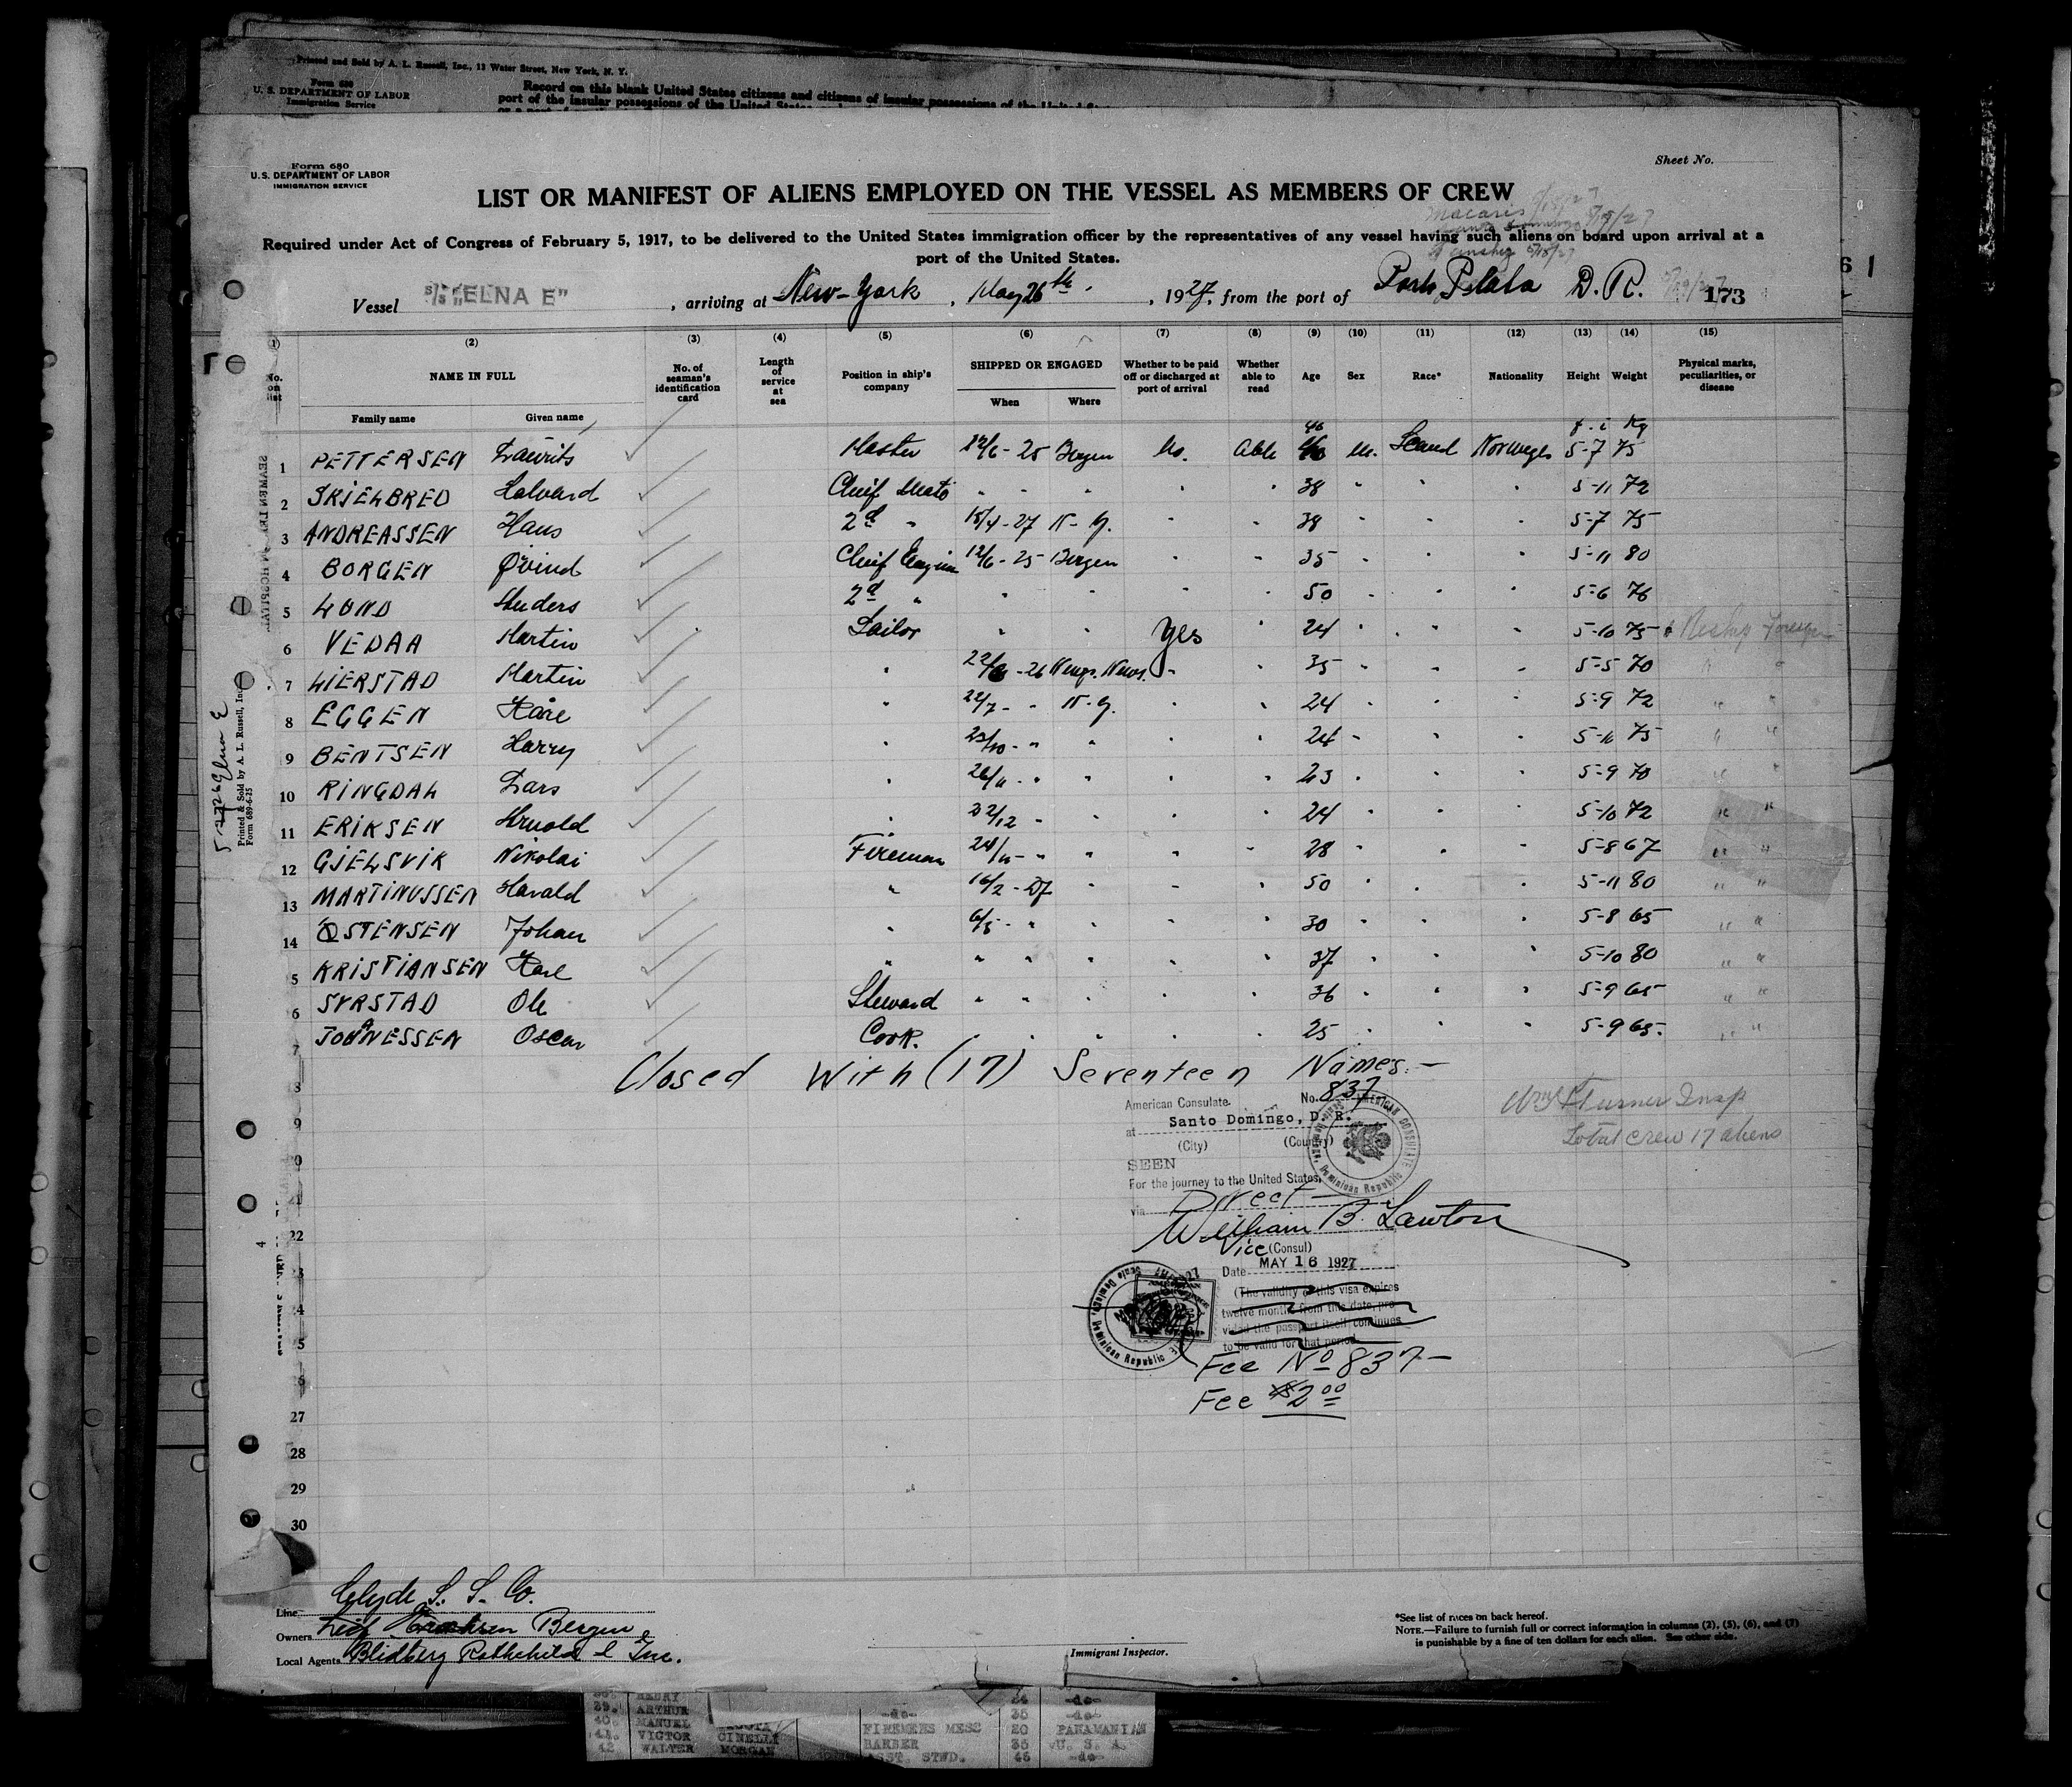 Printed and Sold by A. L. Russell, Inc., 12 Water Street, New York, N. Y.
Form 680
U. S. DEPARTMENT OF LABOR
Immigration Service
Record on this blank United States citizens and citizens of insular possessions of the United
port of the insular possessions of the United States
Form 680
U. S. DEPARTMENT OF LABOR
IMMIGRATION SERVICE
Sheet No.
LIST OR MANIFEST OF ALIENS EMPLOYED ON THE VESSEL AS MEMBERS OF CREW
Required under Act of Congress of February 5, 1917, to be delivered to the United States immigration officer by the representatives of any vessel having such aliens on board upon arrival at a
port of the United States.
Vessel S/S "ELNA E", arriving at New-York, May 26th, 1927, from the port of Porto Plata D. R. 173
(1) (2) (3) (4) (5) (6) (7) (8) (9) (10) (11) (12) (13) (14) (15)
No. on list NAME IN FULL No. of seaman's identification card Length of service at sea Position in ship's company SHIPPED OR ENGAGED Whether to be paid off or discharged at port of arrival Whether able to read Age Sex Race* Nationality Height Weight Physical marks, peculiarities, or disease
Family name Given name When Where
f. i Kg
1 PETTERSEN Laurits Master 12/6 - 25 Bergen No. Able 46 M. Scand Norwegs 5-7 75
2 SKIELBRED Halvard Chief Mate " " " " 38 " " " 5-11 72
3 ANDREASSEN Hans 2d " 15/4-27 N-Y. " " 38 " " " 5-7 75
4 BORGEN Øvind Chief Engin 12/6-25 Bergen " " 35 " " " 5-11 80
5 LUND Anders 2d " " " " " 50 " " " 5-6 76
6 VEDAA Martin Sailor " " Yes " 24 " " " 5-10 75 Reship Foreign
7 LIERSTAD Martin " -26 Newp. News. " " 35 " " " 5-5 70 " "
8 EGGEN Kåre " 22/7- " N-Y. " " 24 " " " 5-9 72 " "
9 BENTSEN Harry " 23/10- " " " " 24 " " " 75 " "
10 RINGDAL Lars " " " " " 23 " " " 5-9 70 " "
11 ERIKSEN Arnold " 22/12 " " " " 24 " " " 5-10 72 " "
12 GJELSVIK Nikolai Fireman " " " " 28 " " " 5-8 67 " "
13 MARTINUSSEN Harald " 16/2-27 " " " 50 " " " 5-11 80 " "
14 ØSTENSEN Johan " 6/5- " " " " 30 " " " 5-8 65 " "
5 KRISTIANSEN Karl " " " " " " 37 " " " 5-10 80 " "
6 SYRSTAD Ole Steward " " " " " 36 " " " 5-9 65 " "
7 JOHANESSEN Oscar Cook. " " " " 25 " " " 5-9 65. " "
Closed With (17) Seventeen Names.—
8
9
20
21
22
23
24
25
26
27
28
29
30
American Consulate. No. 837
at Santo Domingo, D. R.
(City) (Country)
SEEN
For the journey to the United States,
via Direct
William B. Lawton
Vice (Consul)
Date MAY 16 1927
(The validity of this visa expires
twelve months from this date, pro-
vided the passport itself continues
to be valid for that period.
Fee No 837—
Fee $2.00
AMERICAN CONSULATE
Santo Domingo, Dominican Republic
Wm Turner Insp
Total crew 17 aliens
Elna E
Printed & Sold by A. L. Russell, Inc.
Form 689-6-25
Line Clyde S. S. Co.
Owners Leif Erichsen Bergen
Local Agents Blidberg Rothchild Inc.
Immigrant Inspector.
*See list of races on back hereof.
NOTE.—Failure to furnish full or correct information in columns (2), (5), (6), and (7)
is punishable by a fine of ten dollars for each alien. See other side.
HENRY 34 -do-
39. ARTHUR -do- 35 -do-
40. MANUEL FIREMENS MESS 20 PANAMANIAN
41. VICTOR CINELLI BARBER 35 U. S. A.
42 WALTER MORGAN ASST. STWD. 45 -do-